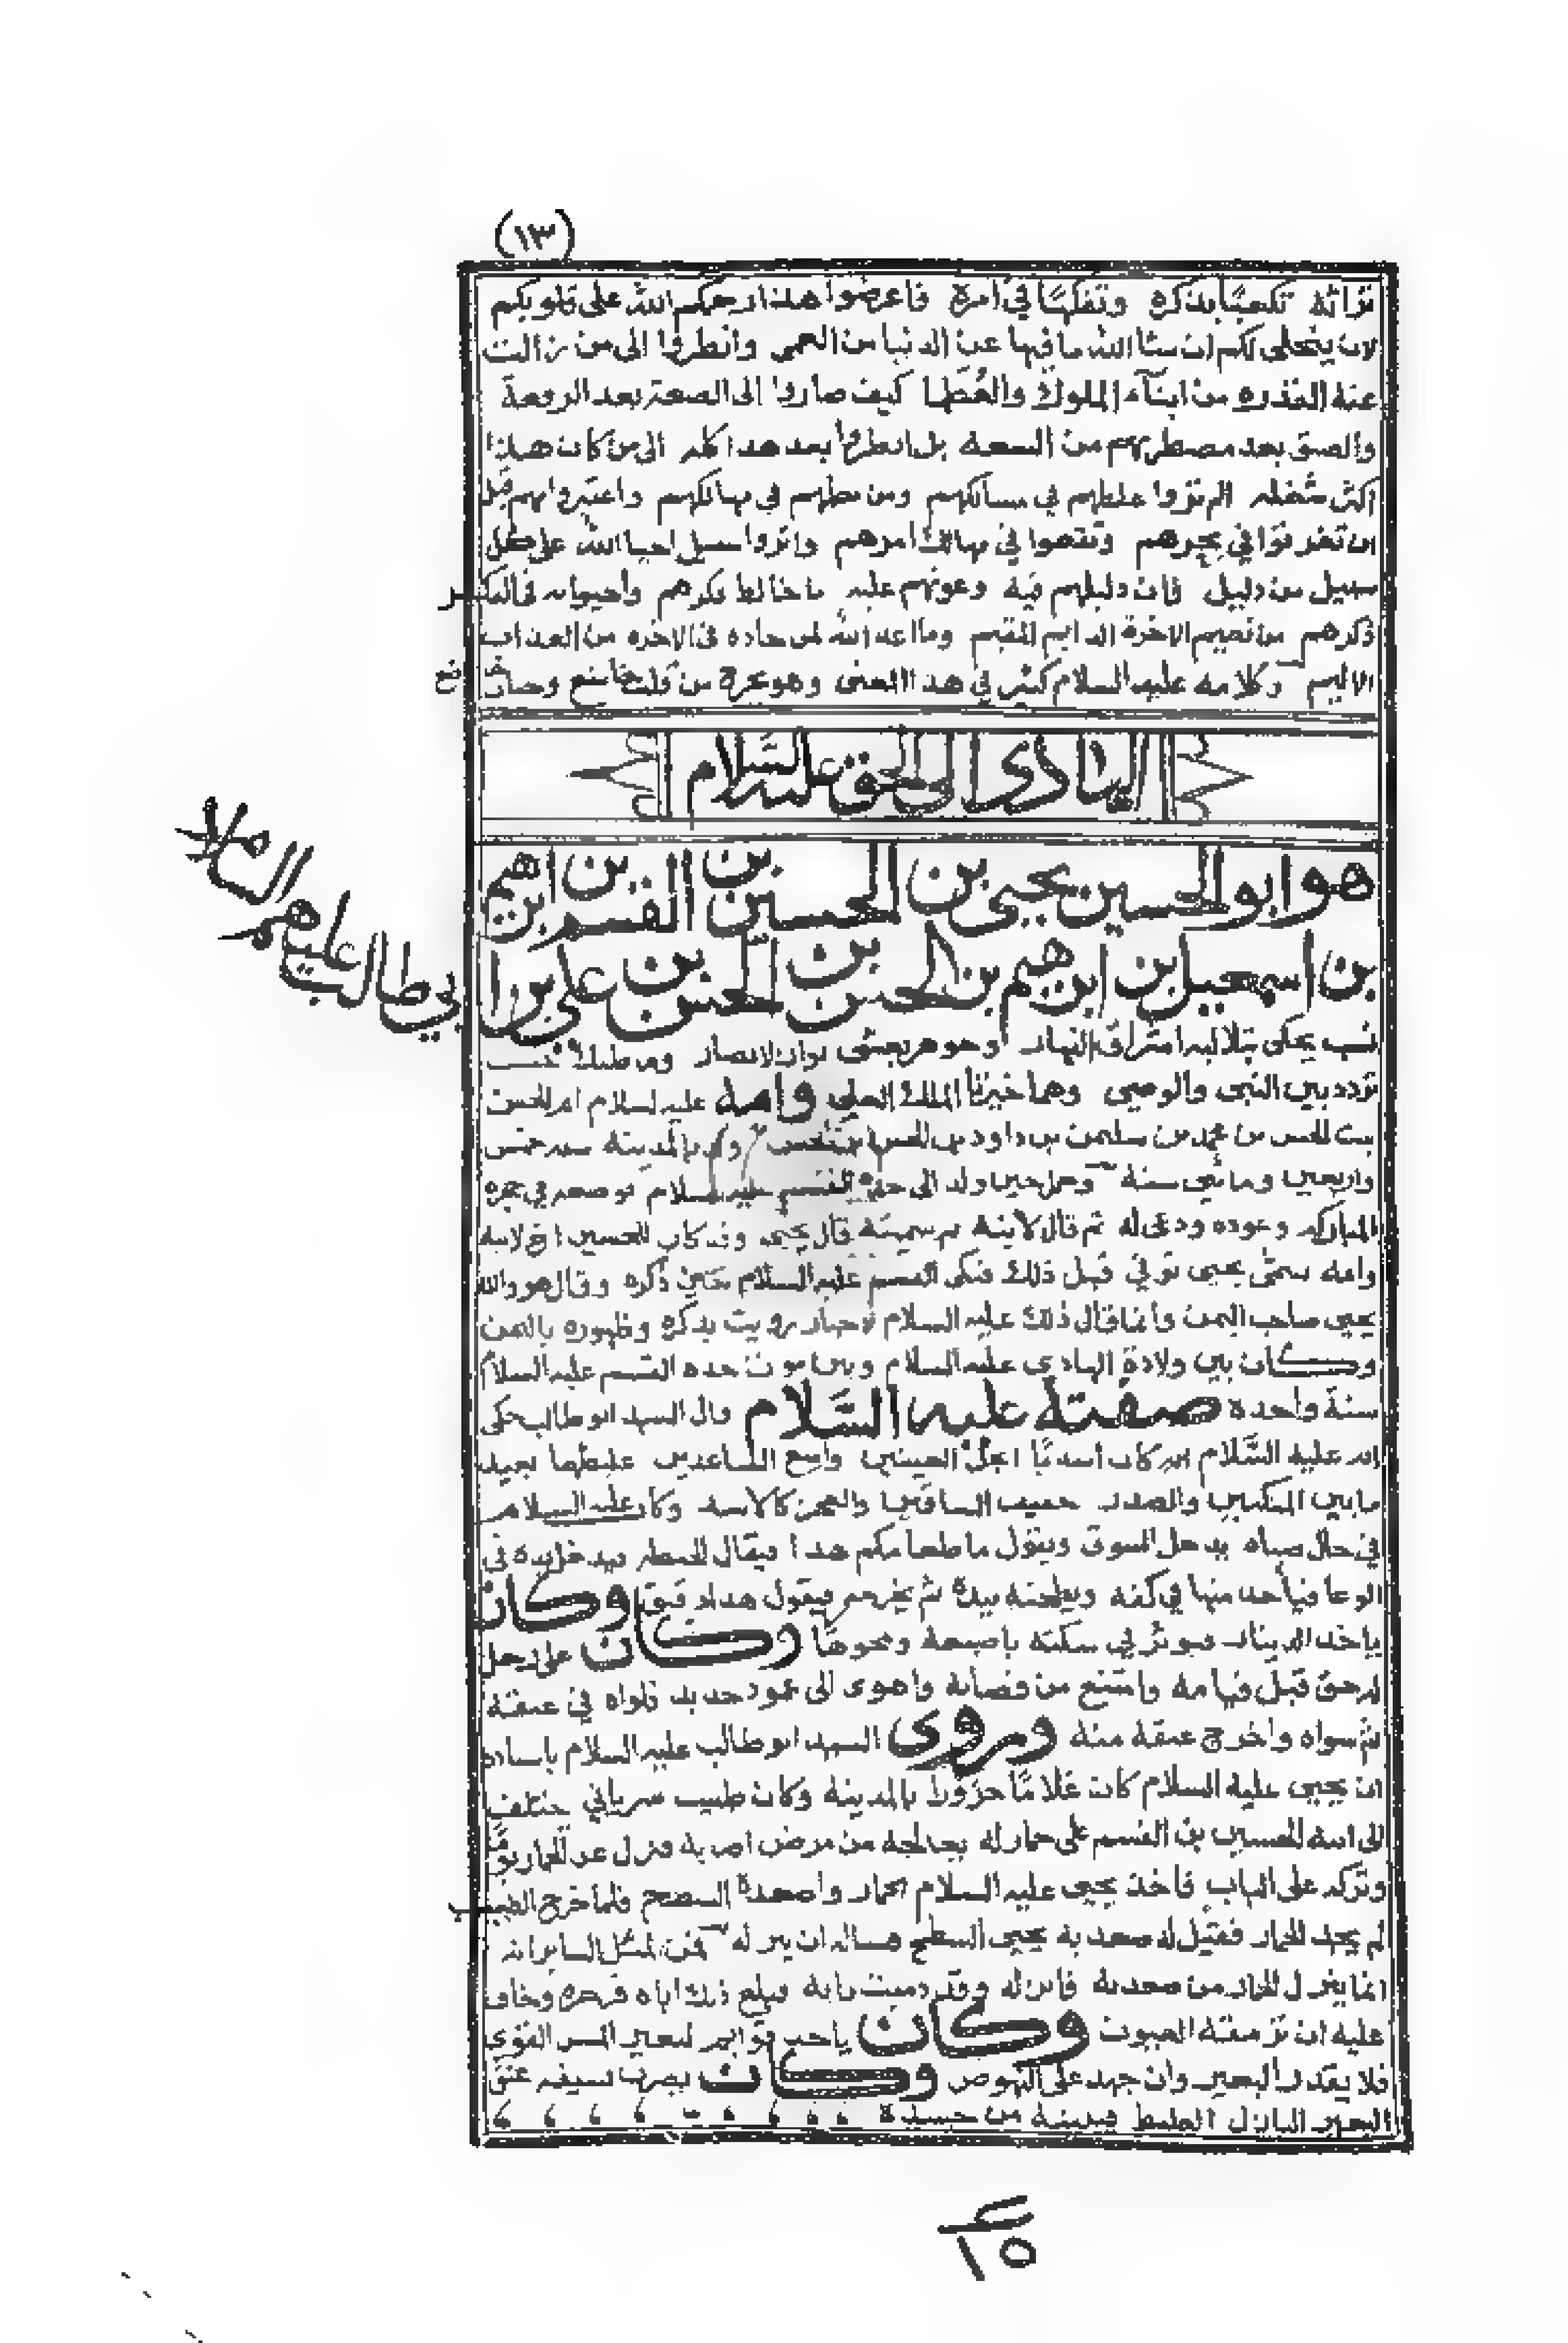 (١٣)
تراثه تكعبا بذكره وتفكها في امره فاعرضوا هذا رحمكم الله على قلوبكم
لان ينجلي لكم ان شا الله ما فيها عن الدنيا من العمى وانظروا الى من زالت
عنه المقدره من ابنآء الملوك والعُظَما كيف صاروا الى الضعة بعد الرفعة
والضيق بعد مضطربهم من السعه بل انظروا بعد هدا كله الى من كان هذا
اكثر شغله الم تروا غلطهم في مسالكهم ومن عطهم في مهالكهم واعتبروا بهم قبل
ان تغرقوا في بحرهم وتقعوا في مهالك امرهم واثروا سبيل احيا الله على كل
سبيل من دليل فان دليلهم فيه وعونهم عليه ما خالط فكرهم واحيوا به في الفكر
ذكرهم من نعيم الاخرة الدايم المقيم وما اعد الله لمن حاده في الاخره من العذاب
الاليم وكلامه عليه السلام كثير في هدا المعنى وهو يخرج من قلب خاشع وخايف
الهادى الى الحق عليه السَّلام
هو ابو الحسين يحيى بن الحسين بن القسم بن ابرهيم
بن اسمعيل بن ابرهيم بن الحسن بن الحسن بن علي بن ابي طالب عليهم السلام
نسب يحلى بتلاليه اشراق النهار وهو هر يعشى نواره الابصار وما ظنك بنسب
تردد بين النبى والوصى وهما خيرتا الملك العلى وامه عليه السلام ام الحسن
بنت الحسن بن محمد بن سليمن بن داود بن الحسن بن الحسن ولد بالمدينه سنه خمس
واربعين ومائتي سنة وحمل حين ولد الى جده القسم عليه السلام فوضعه في حجره
المباركه وعوده ودعى له ثم قال لابنه بم سميته قال يحيى وقد كان للحسين اخ لابيه
وامه يسمى يحيى توفي قبل ذلك فبكى القسم عليه السلام حين ذكره وقال هو والله
يحيى صاحب اليمن وانما قال ذلك عليه السلام لاخبار رويت بذكره وظهوره باليمن
وكان بين ولادة الهادى عليه السلام وبين موت جده القسم عليه السلام
سنة واحده صفته عليه السَّلام قال السيد ابو طالب حكى
انه عليه السَّلام انه كان اسديا انجل العينين واسع الساعدين غليظهما بعيد
ما بين المنكبين والصدر خفيف الساقين والعجز كالاسد وكان عليه السلام
في حال صباه يدخل السوق ويقول ما طعامكم هدا فيقال الحنطه فيدخل يده في
الوعا فياخد منها في كفه ويطحنه بيده ثم يخرجه فيقول هدا دقيق وكان
ياخد الدينار فيوثر في سكته باصبعه ومحوها وكان على رجل
له حق قبل قيامه وامتنع من قضائه واهوى الى عمود حديد فلواه في عنقه
ثم سواه واخرج عنقه منه وروى السيد ابو طالب عليه السلام باسناده
ان يحيى عليه السلام كان غلامًا حزورا بالمدينة وكان طبيب سرياني يختلف
الى ابيه الحسين بن القسم على حمار له يعالجه من مرض اصابه فنزل عن الحمار يوما
وتركه على الباب فاخذ يحيى عليه السلام الحمار واصعده السطح فلما خرج الطبيب
لم يجد الحمار فقيل له صعد به يحيى السطح فساله ان ينزله فمن المثل الساير انه
انما ينزل الحمار من صعد به فانزله وقد دميت بنانه فبلغ ذلك اباه فزجره وخاف
عليه ان ترمقه العيون وكان ياخد قوايم البعير المسن القوى
فلا يقدر البعير وان جهد على النهوض وكان يضرب بسيفه عنق
البعير البازل الغليظ فيبينه من جسده
١٥